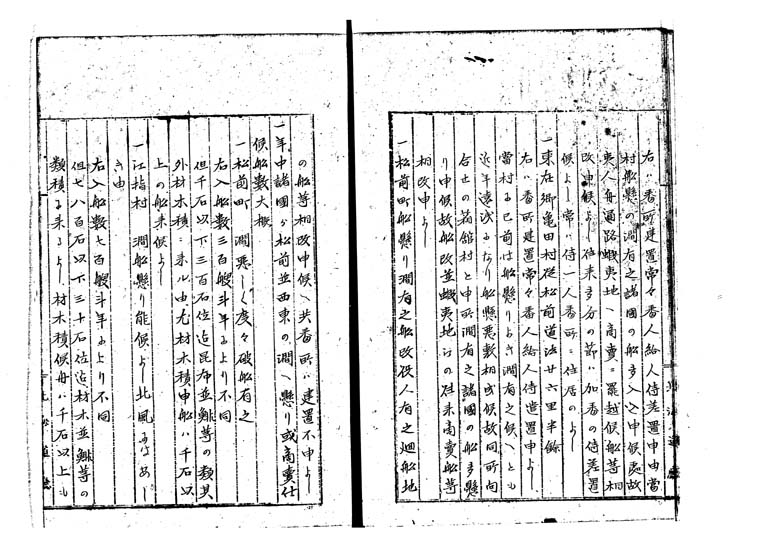 右ハ番所建置常々番人給人侍差置申由當
村船懸の澗有之諸國の船多入込申候處故
東人舟通路蝦夷地ヘ高賣ニ罷越候船等相
改申候よし往来多分の節ハ加番の侍差置
候よし常ハ侍一人番所ニ住居のよし
一東在郷亀田村従松前道法廿六里半餘
右ハ番所建置常々番人侍造置申よし
當村ニ已前は船懸りよき澗有之候ヘとも
近年遠浅になり船懸悪敷相成候故同所向
合士の箱舘村と申所澗有之諸國の船多懸
り申候故船改並蝦夷地けの往来高賣船等
相改申よし
一松前町船懸り澗有之船改役人有之廻船地
の船等相改申候ヘ共番所ハ建置不申よし
一年中諸國ゟ松前並西東の澗ヘ懸り或高賣仕
候船数大概
一松前町 澗悪しく度々破船有之
右入船数三百艘斗年により不同
但千石以下三百石位迠昆布並鯡等の類其
外材木積ニ来ル由尤材木積申船ハ千石以
上の船来候よし
一江指村 澗船懸り能候よし北風にはあし
き由
右入船数七百艘斗年により不同
但七八百石以下三十石位迠材木並鯡等の
類積に来るよし材木積候舟ハ千石以上も